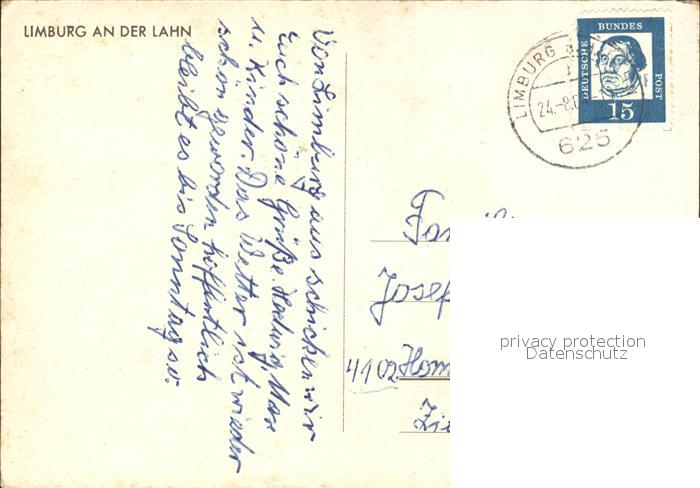 LIMBURG AN DER LAHN
Von Limburg aus schicken wir
Euch schöne Grüße Hedwig, Max
u. Kinder. Das Wetter ist wieder
schön geworden hoffentlich
bleibt es bis Sonntag so.
LIMBURG
24.-8
625
DEUTSCHE
BUNDES
POST
15
Josef
4102 Hom
privacy protection
Datenschutz